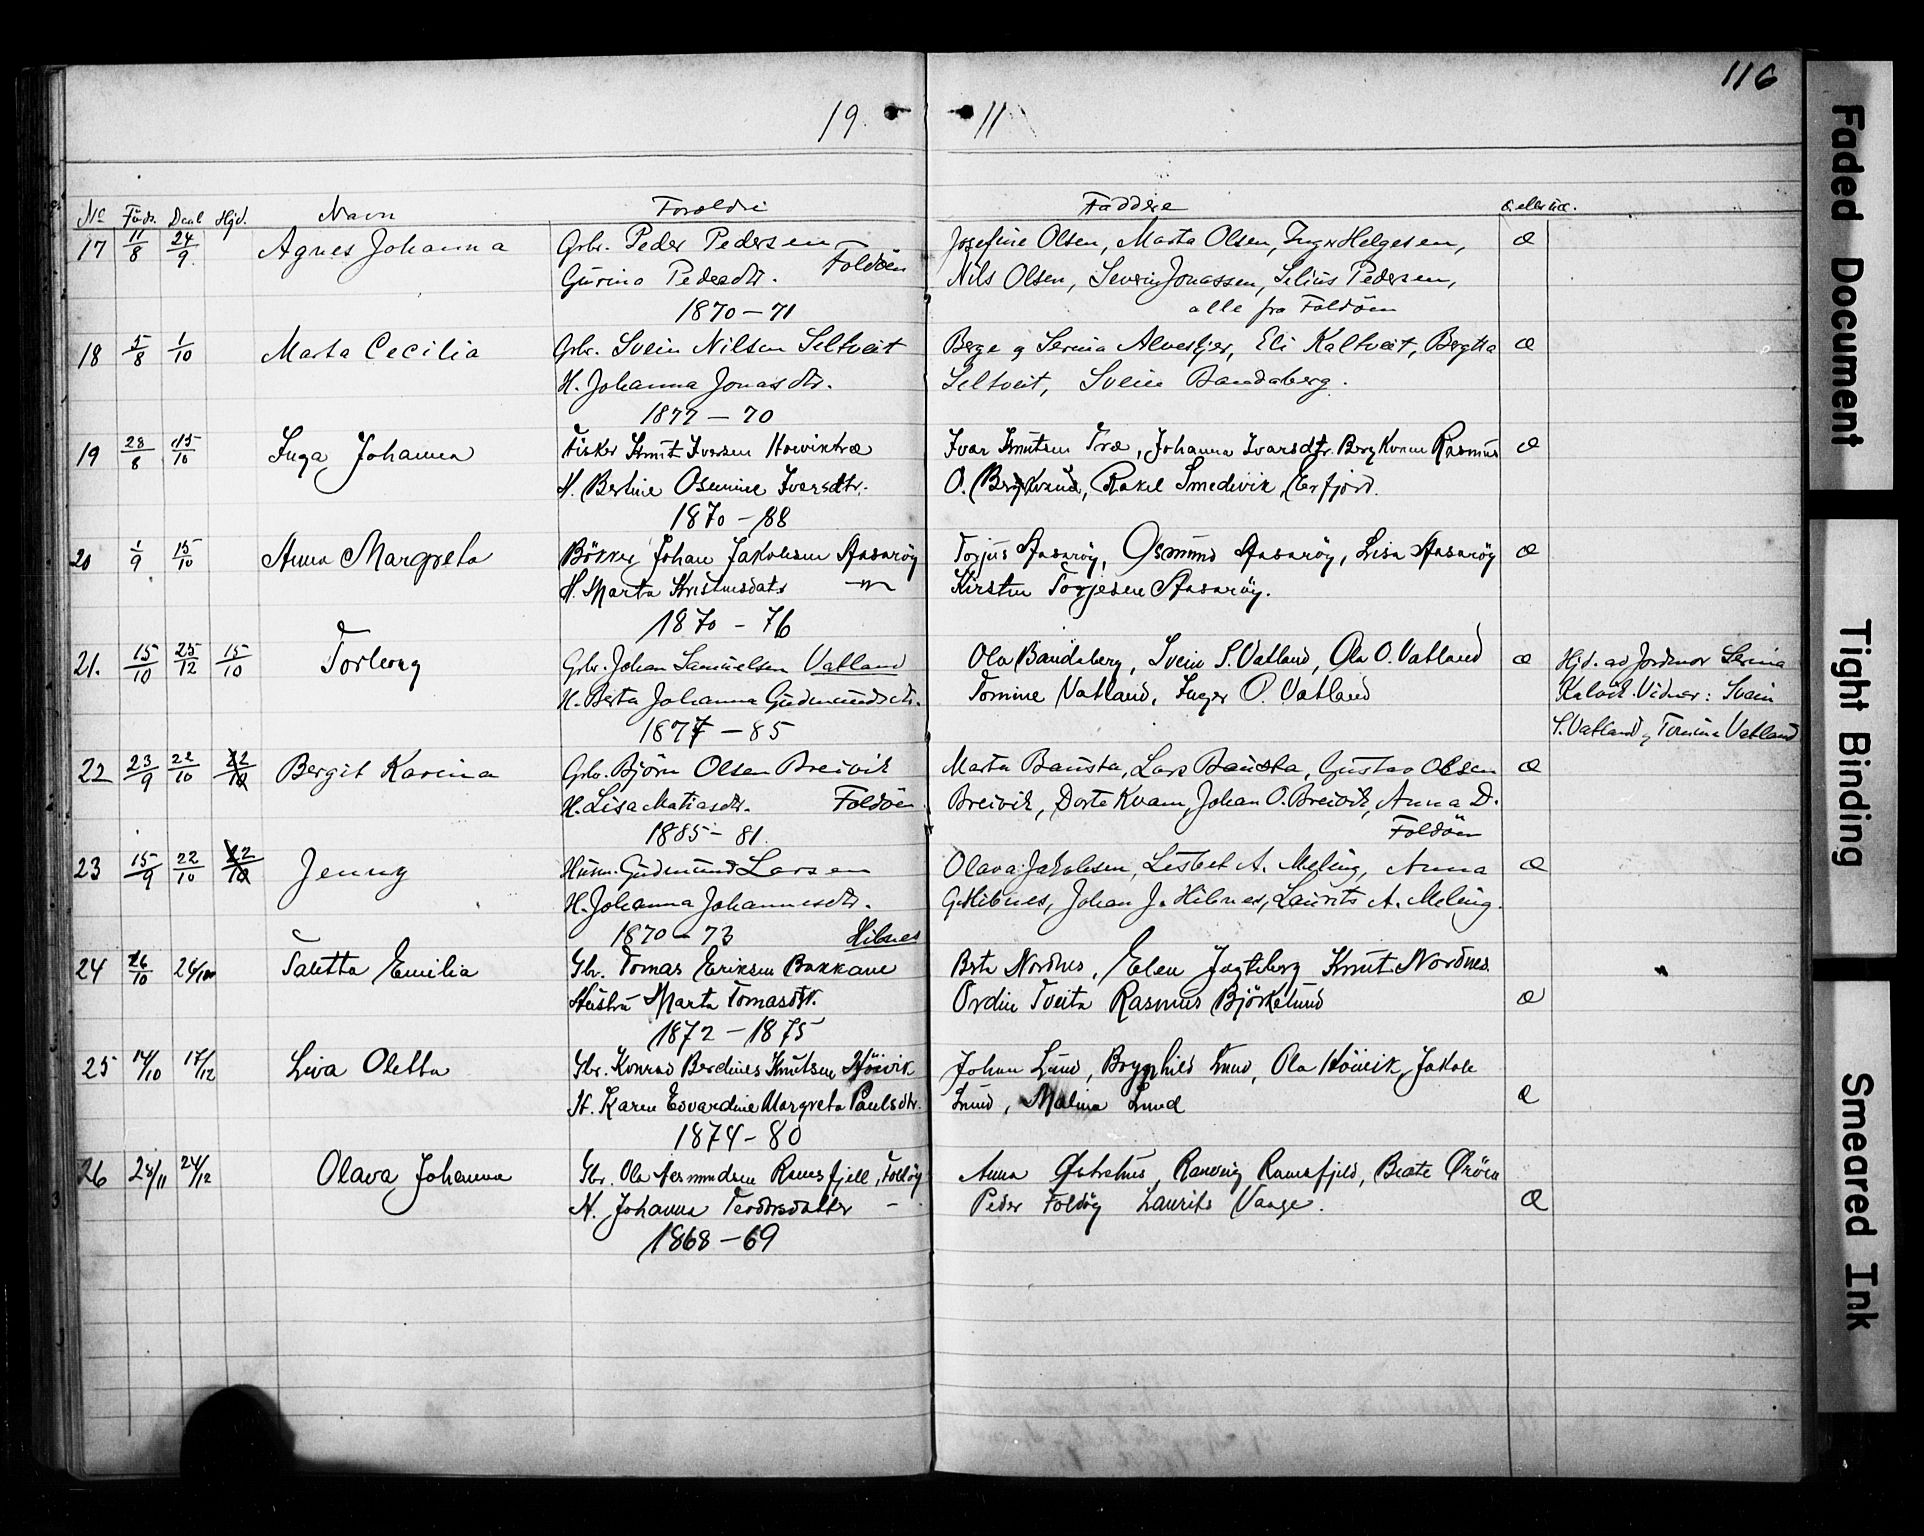 116
19 11
No Föds. Daab Hjd. Navn Forældre Faddere Æ eller uæ.
17 11/8 24/9 Agnes Johanna Grbr. Peder Pedersen Josefine Olsen, Marta Olsen, Inger Helgesen, Æ
Gurina Pedersdtr. Foldöen Nils Olsen, Severin Jonassen, Selius Pedersen,
1870-71 alle fra Foldöen
18 5/8 1/10 Marta Cecilia Grbr. Svein Nilsen Seltveit Berge og Serina Alvestjer, Eli Kaltveit, Bergtta Æ
H. Johanna Jonasdtr. Seltveit, Svein Bandaberg.
1877-70
19 28/8 15/10 Inga Johanna Fisker Knut Iversen Hovviktræ Ivar Knutsen Træ, Johanna Ivarsdtr. Berg Kvam Rasmus Æ
H. Bertine Osmine Iversdtr. O. Bergkvam, Rakel Smedivik, Erfjord.
1870-88
20 1/9 15/10 Anna Margreta Bökker Johan Jakobsen Aasaröy Torjus Aasaröy, Osmund Aasaröy, Lisa Aasaröy Æ
H. Marta Kristensdatr Kirsten Torjesen Aasaröy.
1870-76
21. 15/10 25/12 15/10 Torborg Grbr. Johan Samuelsen Vatland Ola Bandaberg, Svein S. Vatland, Ola O. Vatland Æ Hjd. av Jordmor Serina
H. Berta Johanna Gudmundsdtr. Tomine Vatland, Inger O. Vatland Kalvik. Vidner: Svein
1877-85 S. Vatland og Tomine Vatland
22 23/9 22/10 22/10 Bergit Karina Grbr. Björn Olsen Breivik Marta Bausta, Lars Bausta, Gustav Olsen Æ
H. Lisa Matiasdtr. Foldöen Breivik, Dorte Kvam, Johan O. Breivik, Anna D.
1885-81 Foldöen
23 15/9 22/10 22/10 Jenny Husm. Gudmund Larsen Olava Jakobsen, Lisbet A. Meling, Anna Æ
H. Johanna Johannesdtr. G. Hibnes, Johan J. Hibnes, Laurits A. Meling.
1870-73 Hibnes
24 16/10 26/11 Taletta Emilia Gbr. Tomas Eriksen Bakkane Brta Nordnes, Elen Jagteberg Knut Nordnes.
Hustru Marta Tomasdtr. Ordin Tveita Rasmus Björkelund Æ
1872-1875
25 14/10 17/12 Liva Oletta Gbr. Konrad Berdines Knutsen Höivik Johan Lund, Borghild Lund, Ola Höivik, Jakob
H. Karen Edvardine Margreta Paulsdtr. Lund, Malina Lund Æ
1874-80
26 28/11 24/12 Olava Johanna Gbr. Ola Aasmundsen Ramsfjell, Foldöy Anna Östrehus, Ranveig Ramsfjeld, Beate Öröen
H. Johanna Teodorsdatter - Peder Foldöy Laurits Vaage. Æ
1868-69
Faded Document
Tight Binding
Smeared Ink